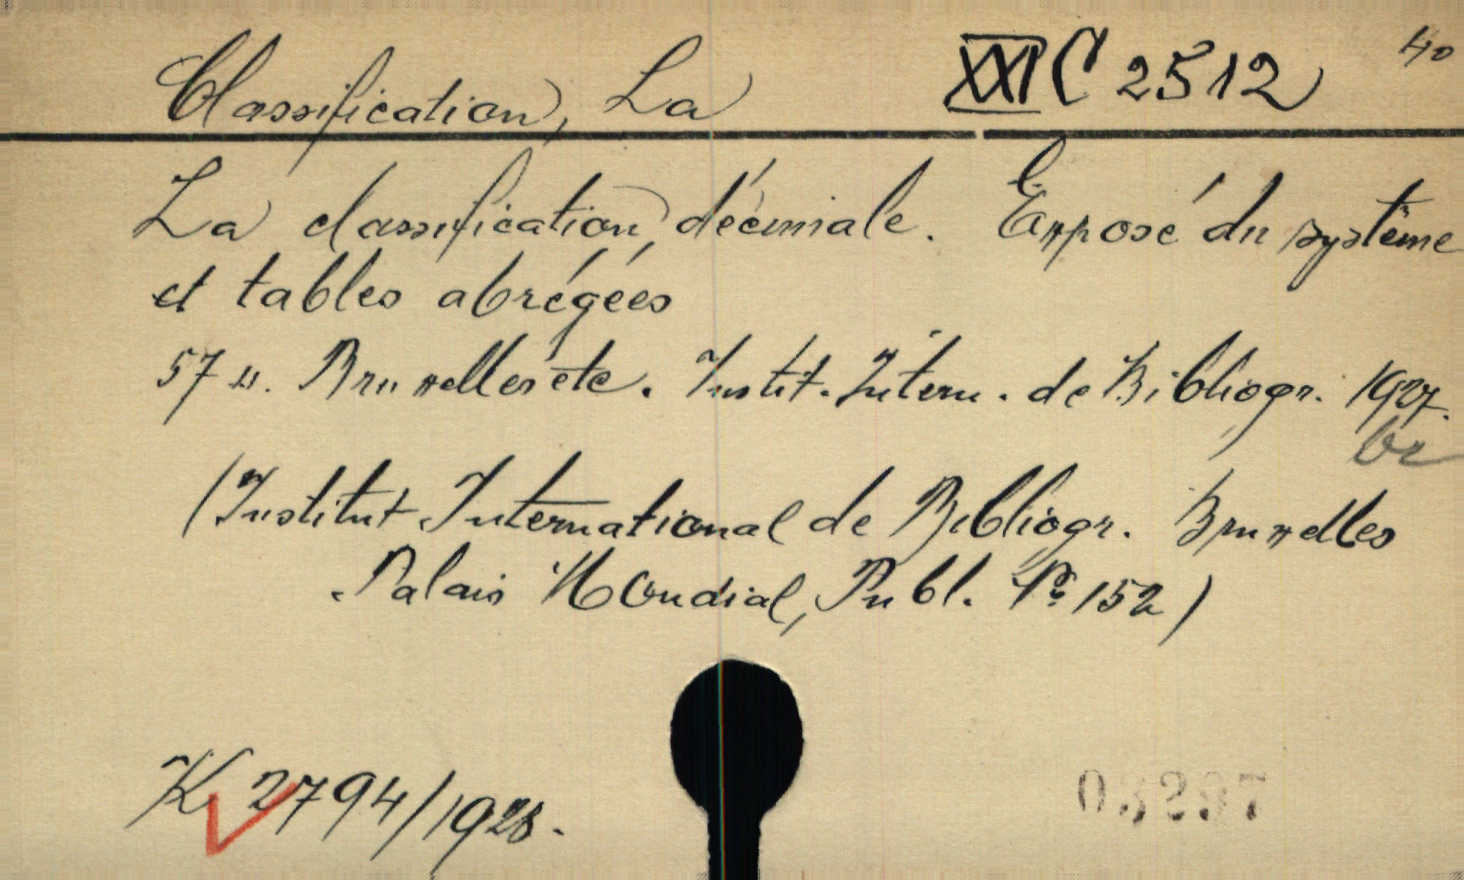 Classification, La XXI C 2512 4o
La classification décimale. Exposé du système
et tables abrégées
57 u. Bruxelles etc. Instit. Intern. de Bibliogr. 1927.
br
(Institut International de Bibliogr. Bruxelles
Palais Mondial, Publ. No 152)
K 2794/1928.
03297